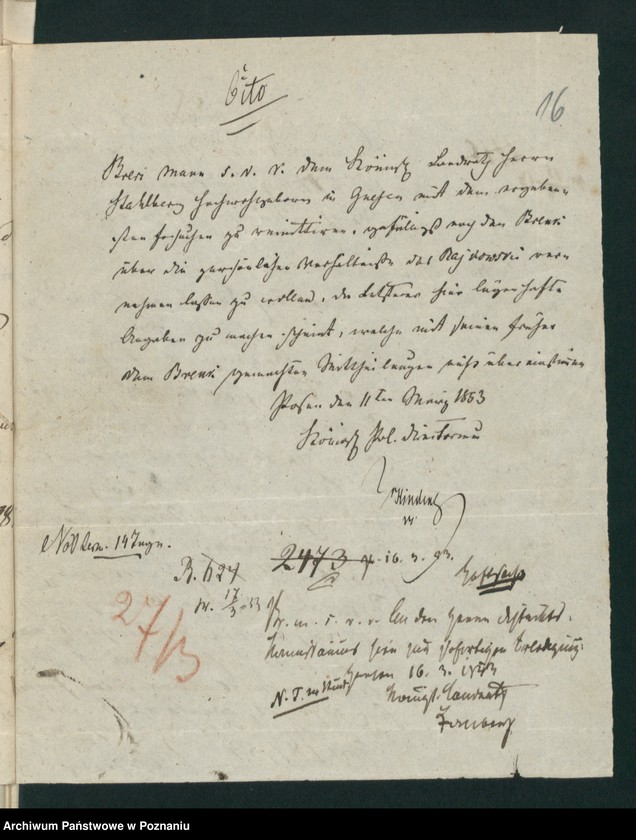 Cito
16
Brevi manu s. v. r. dem Königl. Landrath Herrn
Stahlberg Hochwohlgeboren in Gnesen mit dem ergeben-
sten Ersuchen zu remittiren, gefälligst noch den
über die persönlichen Verhältnisse des ver-
nehmen lassen zu wollen, da Letzterer hier lügenhafte
Angaben zu machen scheint, welche mit seinen früher
dem gemachten Mittheilungen nicht übereinstimmen
Posen den 11ten März 1853
Königl. Pol. Directorium
2473 16. 3. 53.
Haftsache
17/3 53
27/3
Br. m. s. v. r. An den Herrn Distrikts-
Kommissarius hier zur sofortigen Erledigung.
Gnesen 16. 3. 1853
Königl. Landrath
Archiwum Państwowe w Poznaniu